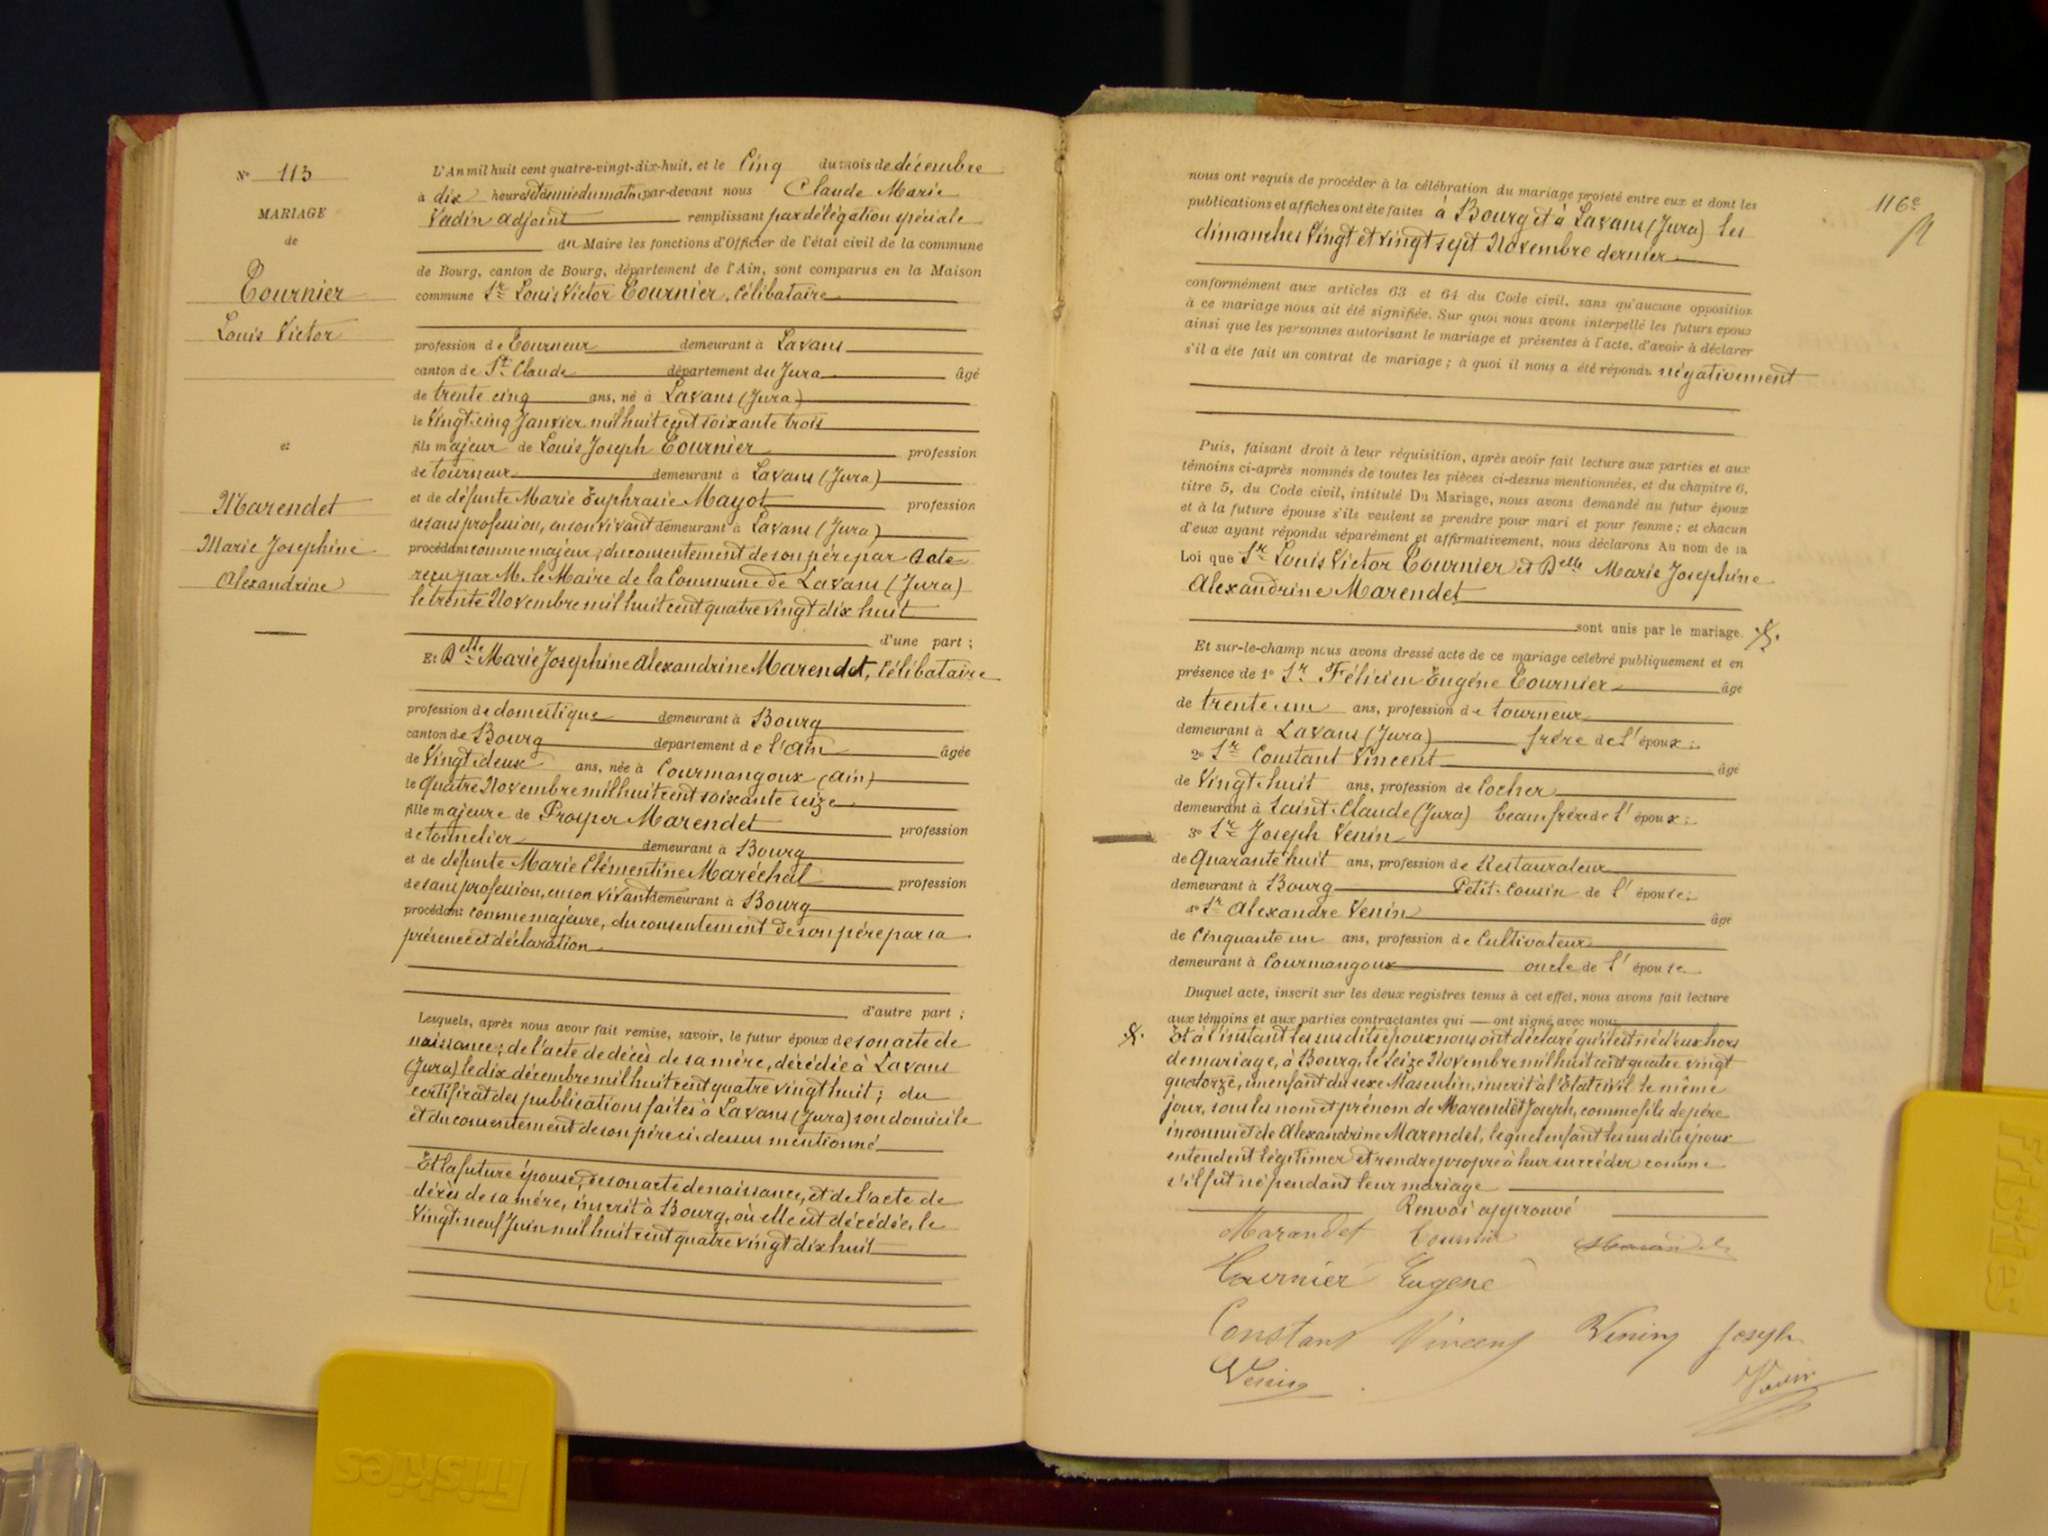 N° 113
MARIAGE
de
Tournier
Louis Victor
et
Marendet
Marie Josephine
Alexandrine
L'An mil huit cent quatre-vingt-dix-huit, et le Cinq du mois de décembre
à dix heures et demie du matin, par-devant nous Claude Marie
Vadin adjoint remplissant par délégation spéciale
du Maire les fonctions d'Officier de l'état civil de la commune
de Bourg, canton de Bourg, département de l'Ain, sont comparus en la Maison
commune Sr Louis Victor Tournier, Célibataire
profession de Tourneur demeurant à Lavans
canton de St Claude département du Jura âgé
de trente cinq ans, né à Lavans (Jura)
le Vingt cinq Janvier mil huit cent soixante trois
fils majeur de Louis Joseph Tournier profession
de tourneur demeurant à Lavans (Jura)
et de défunte Marie Euphrasie Mayot profession
de sans profession, en son vivant demeurant à Lavans (Jura)
procédant comme majeur, du consentement de son père par Acte
reçu par M. le Maire de la Commune de Lavans (Jura)
le trente Novembre mil huit cent quatre vingt dix huit
d'une part ;
Et Delle Marie Josephine Alexandrine Marendet, Célibataire
profession de domestique demeurant à Bourg
canton de Bourg département de l'Ain âgée
de Vingt deux ans, née à Courmangoux (Ain)
le Quatre Novembre mil huit cent soixante seize
fille majeure de Prosper Marendet profession
de tonnelier demeurant à Bourg
et de défunte Marie Clémentine Maréchal profession
de sans profession, en son vivant demeurant à Bourg
procédant comme majeure, du consentement de son père par sa
présence et déclaration
d'autre part ;
Lesquels, après nous avoir fait remise, savoir, le futur époux de son acte de
naissance ; de l'acte de décès de sa mère, décédée à Lavans
(Jura) le dix décembre mil huit cent quatre vingt huit ; du
certificat des publications faites à Lavans (Jura) son domicile
et du consentement de son père ci-dessus mentionné
Et la future épouse, de son acte de naissance, et de l'acte de
décès de sa mère, inscrit à Bourg, où elle est décédée, le
Vingt-neuf Juin mil huit cent quatre vingt dix huit
116e
nous ont requis de procéder à la célébration du mariage projeté entre eux et dont les
publications et affiches ont été faites à Bourg et à Lavans (Jura) les
dimanches Vingt et vingt sept Novembre dernier
conformément aux articles 63 et 64 du Code civil, sans qu'aucune opposition
à ce mariage nous ait été signifiée. Sur quoi nous avons interpellé les futurs époux
ainsi que les personnes autorisant le mariage et présentes à l'acte, d'avoir à déclarer
s'il a été fait un contrat de mariage ; à quoi il nous a été répondu négativement
Puis, faisant droit à leur réquisition, après avoir fait lecture aux parties et aux
témoins ci-après nommés de toutes les pièces ci-dessus mentionnées, et du chapitre 6,
titre 5, du Code civil, intitulé Du Mariage, nous avons demandé au futur époux
et à la future épouse s'ils veulent se prendre pour mari et pour femme ; et chacun
d'eux ayant répondu séparément et affirmativement, nous déclarons Au nom de la
Loi que Sr Louis Victor Tournier et Delle Marie Josephine
Alexandrine Marendet
sont unis par le mariage.
Et sur-le-champ nous avons dressé acte de ce mariage célébré publiquement et en
présence de 1° Sr Félicien Eugéne Tournier âgé
de trente un ans, profession de tourneur
demeurant à Lavans (Jura) frère de l'époux ;
2° Sr Constant Vincent âgé
de Vingt huit ans, profession de Cocher
demeurant à Saint Claude (Jura) beau frère de l'époux ;
3° Sr Joseph Venin
de Quarante huit ans, profession de Restaurateur
demeurant à Bourg Petit-Cousin de l'épouse ;
4° Sr Alexandre Venin âgé
de Cinquante un ans, profession de Cultivateur
demeurant à Courmangoux oncle de l'épouse
Duquel acte, inscrit sur les deux registres tenus à cet effet, nous avons fait lecture
aux témoins et aux parties contractantes qui ont signé avec nous
Et à l'instant les susdits époux nous ont déclaré qu'il est né d'eux hors
de mariage, à Bourg, le Seize Novembre mil huit cent quatre vingt
quatorze, un enfant du sexe Masculin, inscrit à l'Etat civil le même
jour, sous les nom et prénom de Marendet Joseph, comme fils de père
inconnu et de Alexandrine Marendet, lequel enfant les susdits époux
entendent légitimer et rendre propre à leur succéder comme
s'il fut né pendant leur mariage
Renvoi approuvé
Marandet Tournier
Tournier Eugene
Constant Vincent Venin Joseph
Venin Vadin
Friskies
Friskies